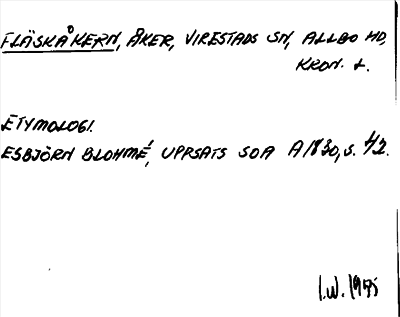 FLÄSKÅKERN, ÅKER, VIRESTADS SN, ALLBO HD,
KRON. L.
ETYMOLOGI.
ESBJÖRN BLOHMÉ, UPPSATS SOA A1830, S. 42.
I.W. 1975